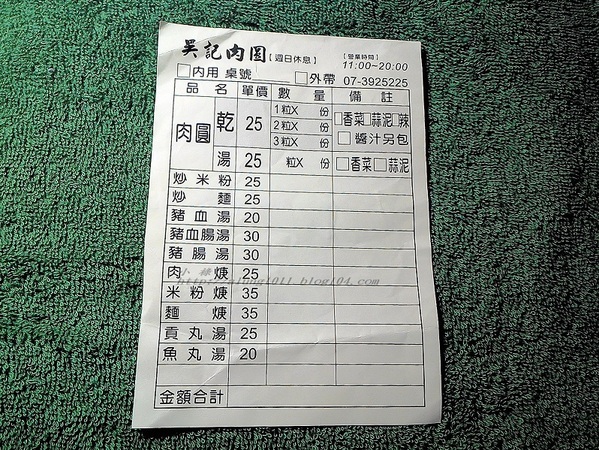 吳記肉圓【週日休息】
【營業時間】
11:00~20:00
□內用 桌號 □外帶 07-3925225
品名 單價 數量 備註
肉圓 乾 25 1粒X 份 □香菜□蒜泥□辣
2粒X 份 □醬汁另包
3粒X 份
湯 25 粒X 份 □香菜□蒜泥
炒米粉 25
炒麵 25
豬血湯 20
豬血腸湯 30
豬腸湯 30
肉焿 25
米粉焿 35
麵焿 35
貢丸湯 25
魚丸湯 20
金額合計